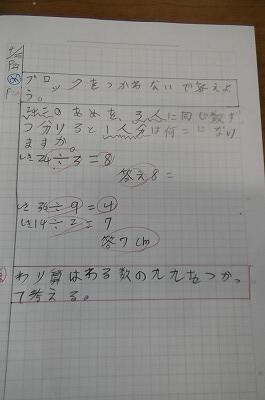 ブロックをつかわないで答えよ
う。
24このあめを、3人に同じ数ず
つ分けると1人分は何こになり
ますか。
しき24÷3=8
答え8こ
しき36÷9=4
しき14÷2=7
答7cm
わり算はわる数の九九をつかっ
て考える。